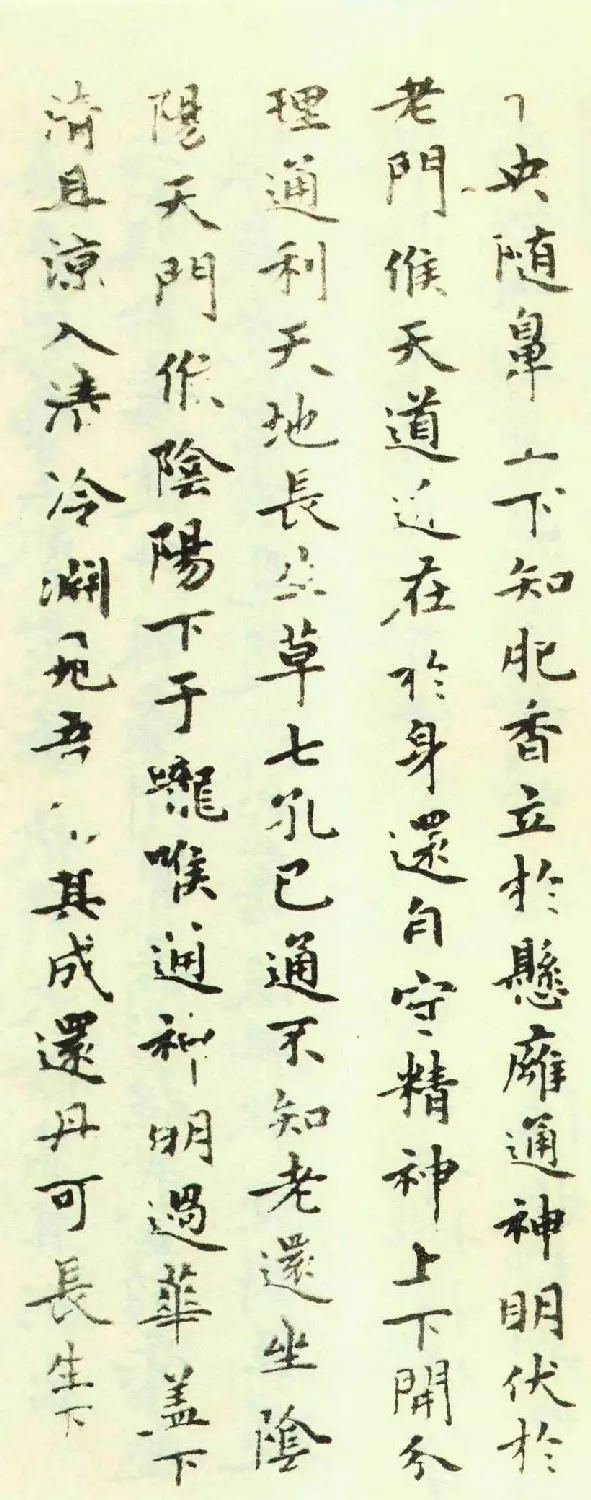 央随鼻上下知肥香立於懸癰通神明伏於
老門候天道近在於身還自守精神上下開分
理通利天地長生草七孔已通不知老還坐陰
陽天門候陰陽下于嚨喉通神明過華蓋下
清且涼入清泠淵見吾其成還丹可長生下